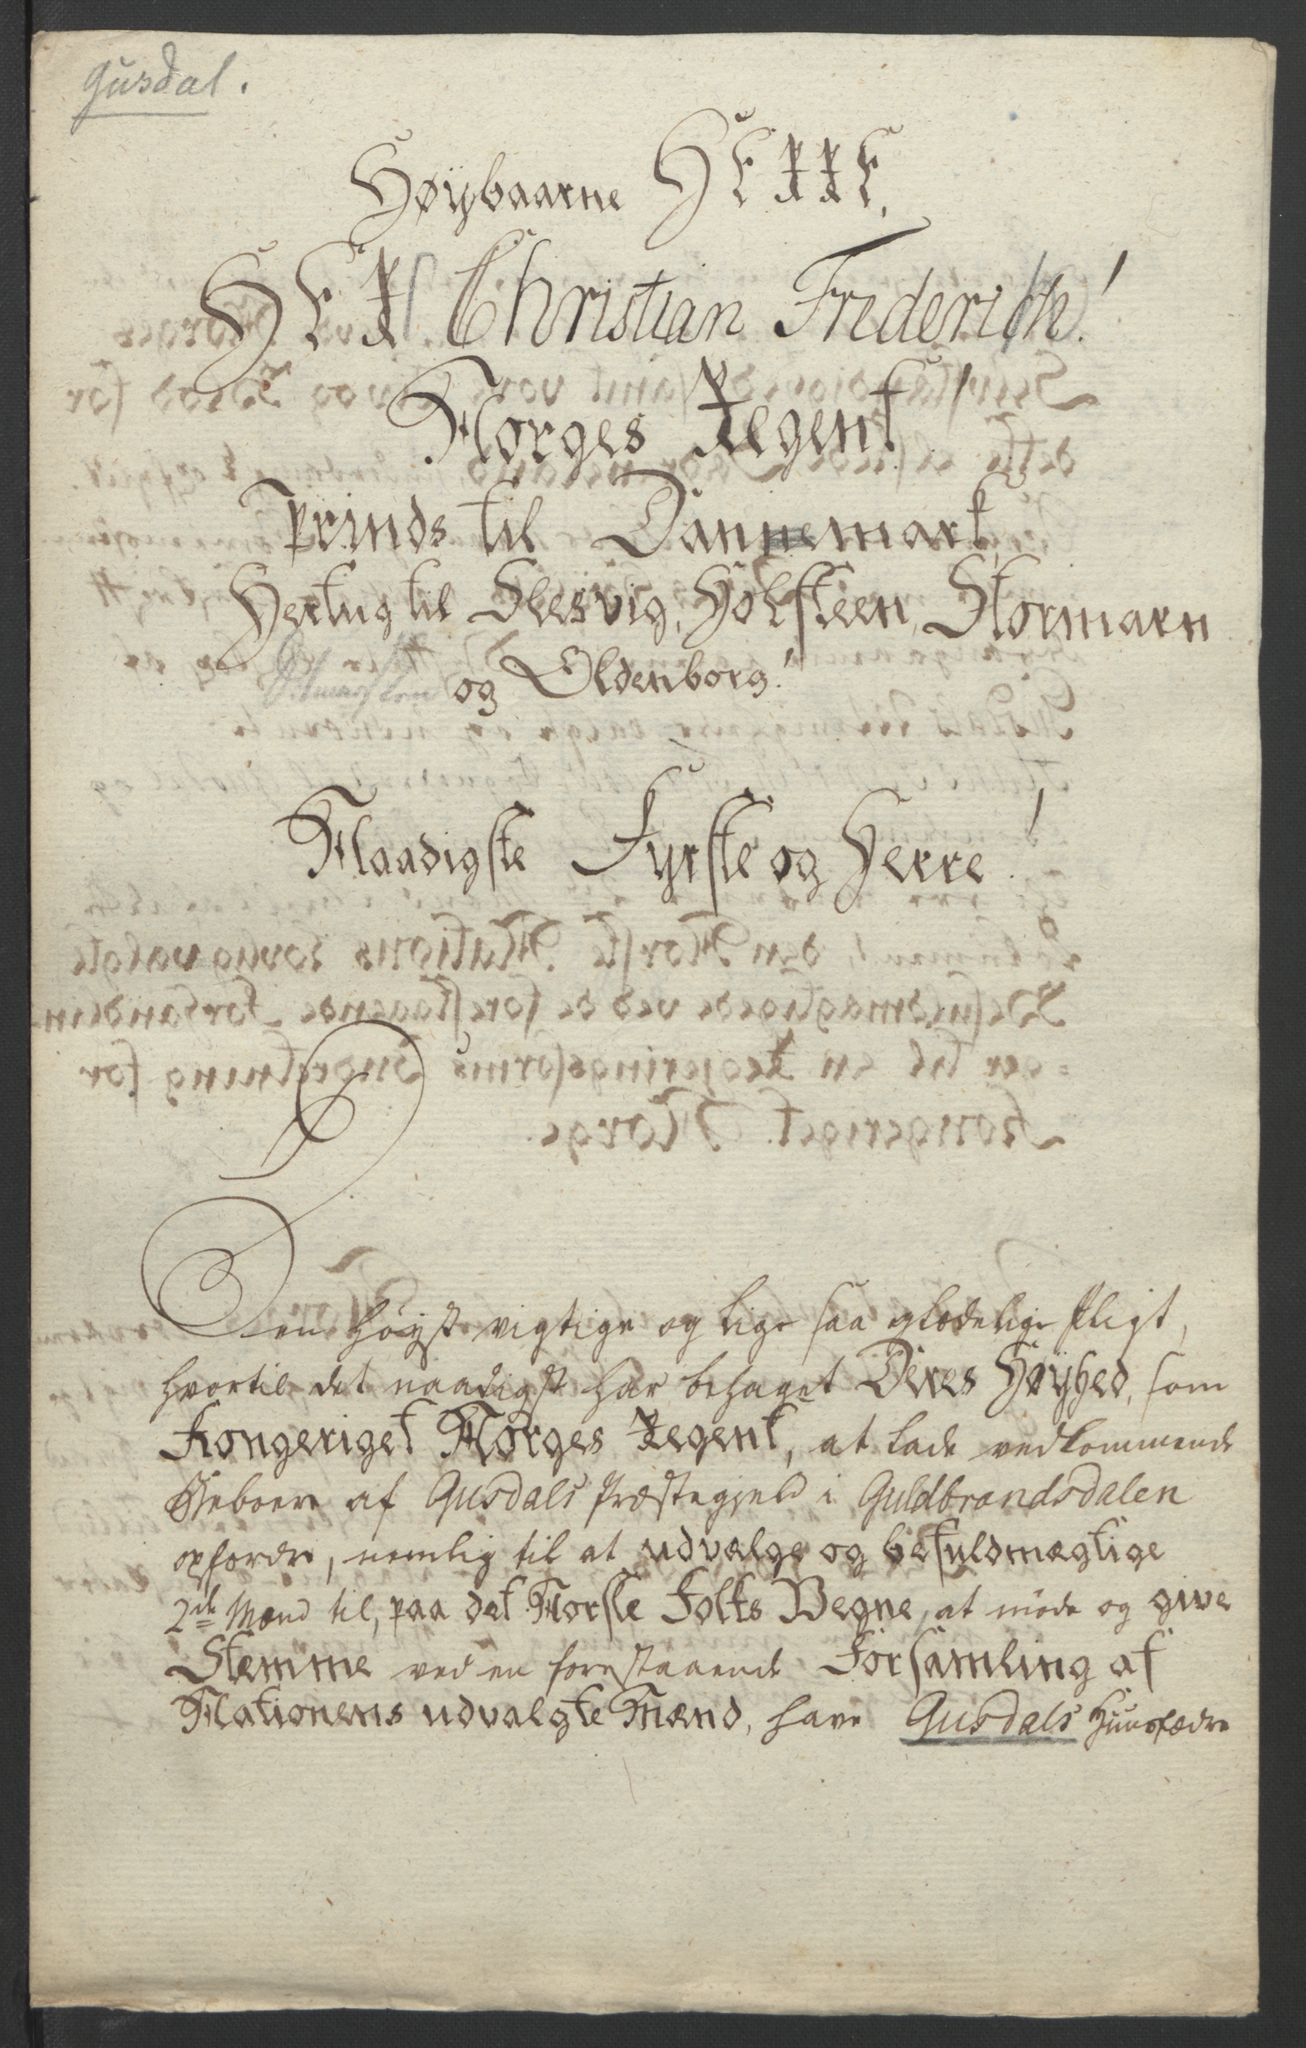 Gusdal.
Høÿbaarne HERRE,
HERR Christian Friderich!
Norges Regent!
Prinds til Dannemark,
Hertug til Slesvig, Holsteen, Stormarn
Ditmarsken og Oldenborg!
Naadigste Fyrste og Herre!
Den høyst vigtige og lige saa glædelige Pligt,
hvortil det naadigst har behaget Deres Høÿhed, som
Kongeriget Norges Regent, at lade vedkommende
Beboere af Gusdals Præstegjeld i Guldbrandsdalen
opfordre, nemlig til at udvælge og befuldmægtige
2de Mænd til, paa det Norske Folks Vegne, at möde og give
Stemme ved en forestaaende Forsamling af
Nationens udvalgte Mænd, have Gusdals Huusfædre